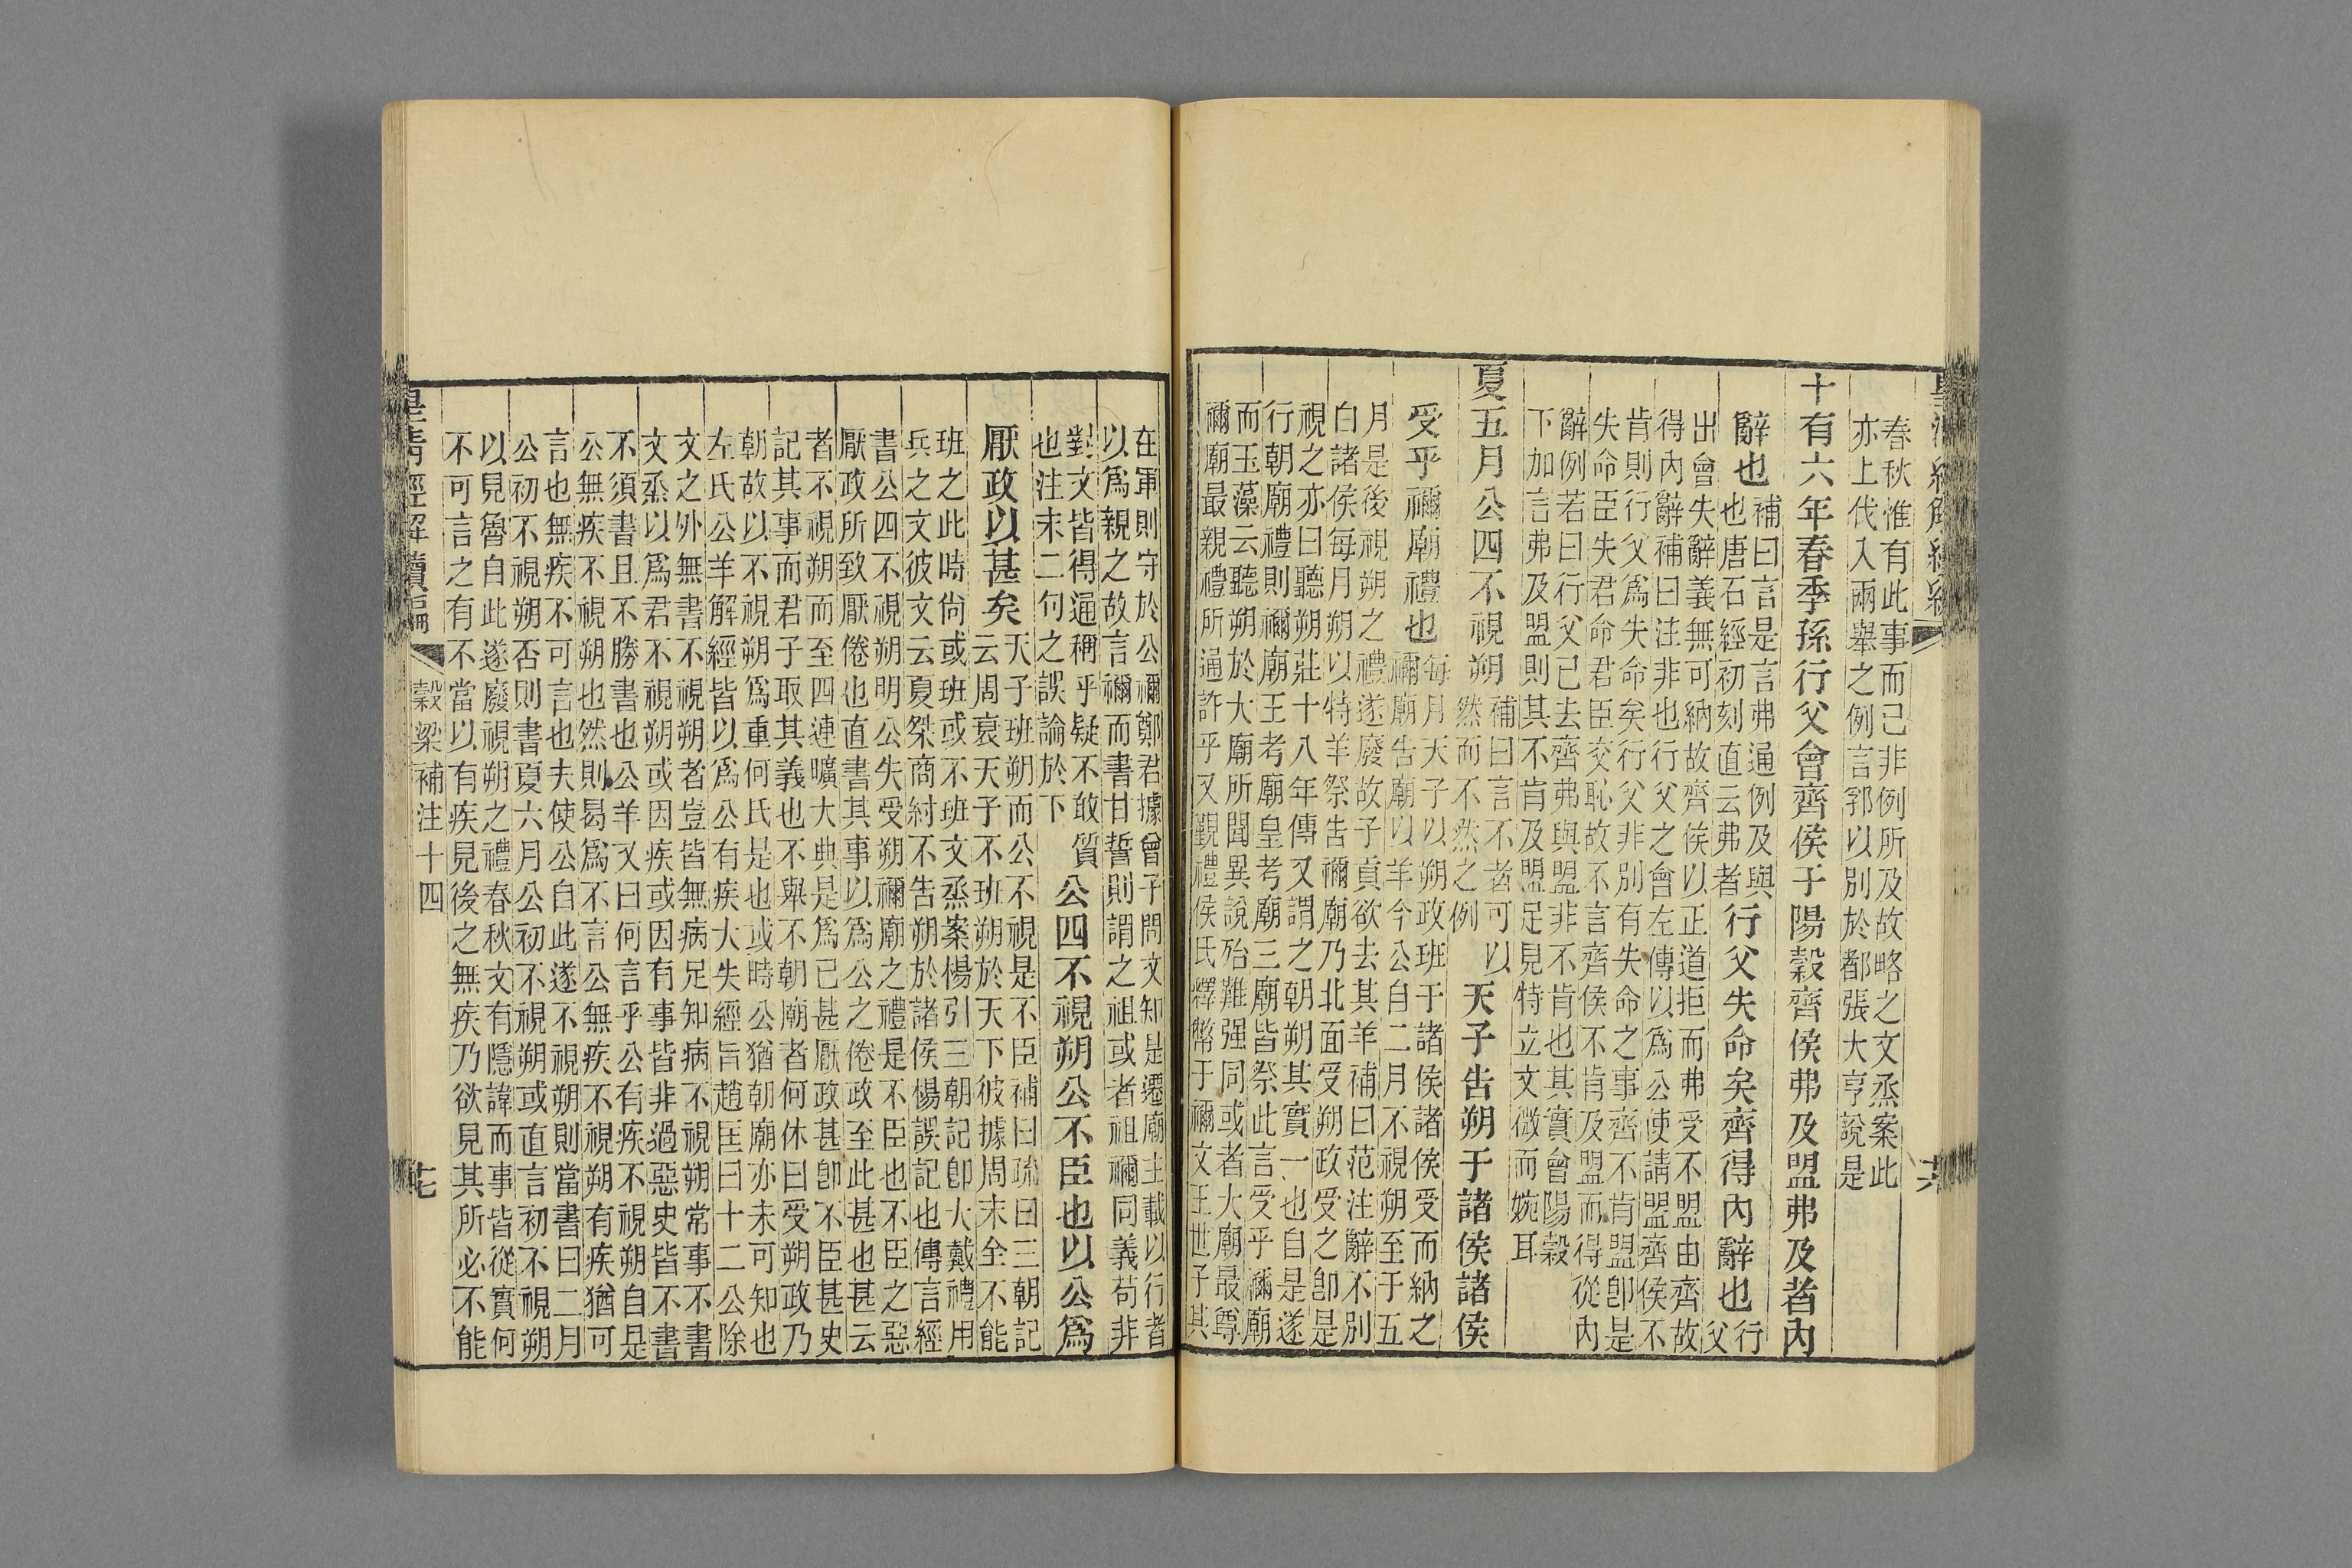 春秋惟有此事而已非例所及故略之文烝案此
亦上伐入兩舉之例言郛以別於都張大亨說是
十有六年春季孫行父會齊侯于陽穀齊侯弗及盟弗及者內
辭也
補曰言是言弗通例及與
也唐石經初刻直云弗者
行父失命矣齊得內辭也
行
父
出會失辭義無可納故齊侯以正道拒而弗受不盟由齊故
得內辭補曰注非也行父之會左傳以為公使請盟齊侯不
肯則行父為失命矣行父非別有失命之事齊不肯盟卽是
失命臣失君命君臣交恥故不言齊侯不肯及盟而得從內
辭例若曰行父已去齊弗與盟非不肯也其實會陽穀
下加言弗及盟則其不肯及盟足見特立文微而婉耳
夏五月公四不視朔
補曰言不者可以
然而不然之例
天子告朔于諸侯諸侯
受乎禰廟禮也
每月天子以朔政班于諸侯諸侯受而納之
禰廟告廟以羊今公自二月不視朔至于五
月是後視朔之禮遂廢故子貢欲去其羊補曰范注辭不別
白諸侯每月朔以特羊祭告禰廟乃北面受朔政受之卽是
視之亦曰聽朔莊十八年傳又謂之朝朔其實一也自是遂
行朝廟禮則禰廟王考廟皇考廟三廟皆祭此言受乎禰廟
而玉藻云聽朔於大廟所聞異說殆難强同或者大廟最尊
禰廟最親禮所通許乎又覲禮侯氏釋幣于禰文王世子其
在軍則守於公禰鄭君據曾子問文知是遷廟主載以行者
以為親之故言禰而書甘誓則謂之祖或者祖禰同義苟非
對文皆得通稱乎疑不敢質
也注末二句之誤論於下
公四不視朔公不臣也以公為
厭政以甚矣
天子班朔而公不視是不臣補曰疏曰三朝記
云周衰天子不班朔於天下彼據周末全不能
班之此時尙或班或不班文烝案楊引三朝記卽大戴禮用
兵之文彼文云夏桀商紂不告朔於諸侯楊誤記也傳言經
書公四不視朔明公失受朔禰廟之禮是不臣也不臣之惡
厭政所致厭倦也直書其事以為公之倦政至此甚也甚云
者不視朔而至四連曠大典是為已甚厭政甚卽不臣甚史
記其事而君子取其義也不舉不朝廟者何休曰受朔政乃
朝故以不視朔為重何氏是也或時公猶朝廟亦未可知也
左氏公羊解經皆以為公有疾大失經旨趙匡曰十二公除
文之外無書不視朔者豈皆無病足知病不視朔常事不書
文烝以為君不視朔或因疾或因有事皆非過惡史皆不書
不須書且不勝書也公羊又曰何言乎公有疾不視朔自是
公無疾不視朔也然則曷為不言公無疾不視朔有疾猶可
言也無疾不可言也夫使公自此遂不視朔則當書曰二月
公初不視朔否則書夏六月公初不視朔或直言初不視朔
以見魯自此遂廢視朔之禮春秋文有隱諱而事皆從實何
不可言之有不當以有疾見後之無疾乃欲見其所必不能
皇清經解續編
穀梁補注十四